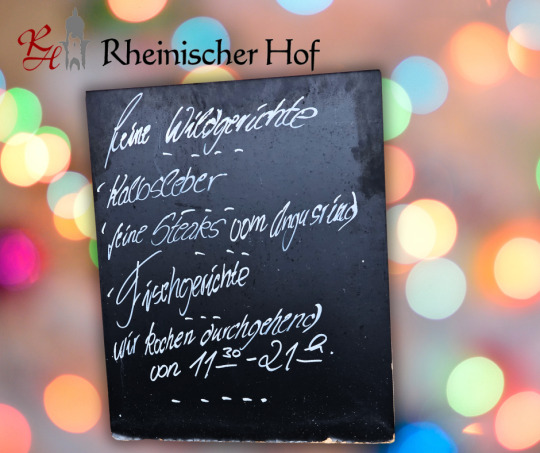 RH Rheinischer Hof
feine Wildgerichte
Kalbsleber
feine Steaks vom Angusrind
Fischgerichte
wir kochen durchgehend
von 11 30 - 21 h.